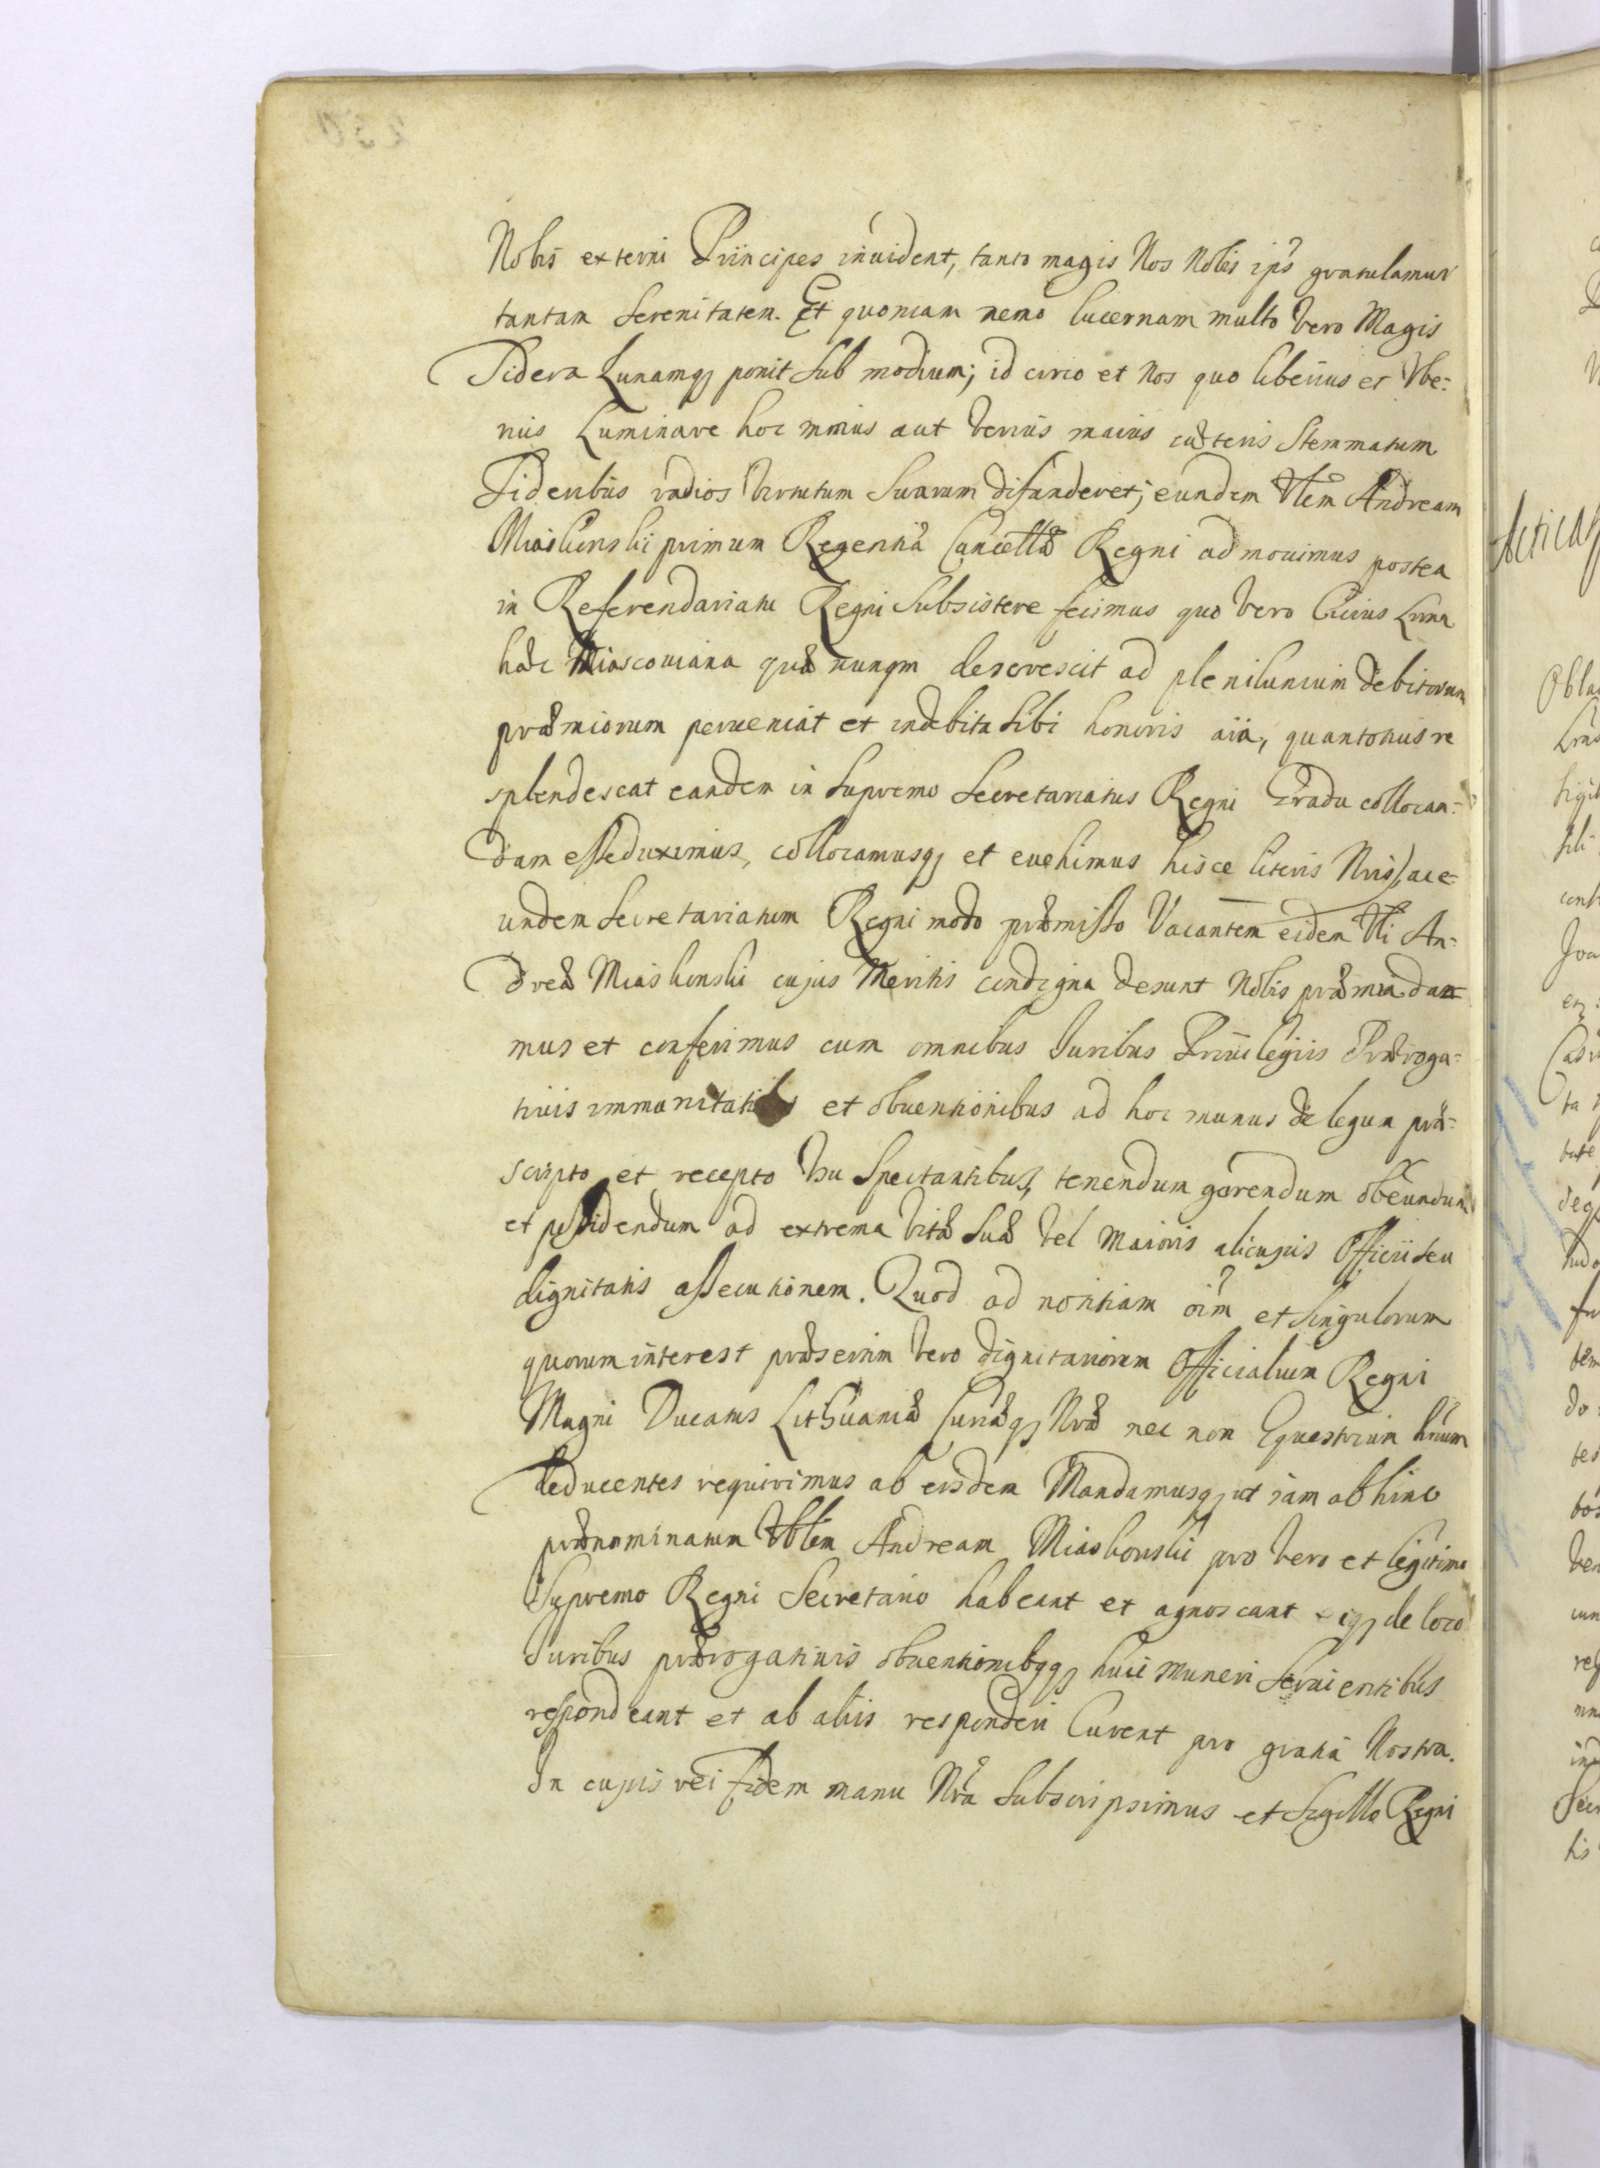 Nobis externi Principes inuident, tanto magis Nos Nobis ips̃ gratulamur
tantam Serenitatem. Et quoniam nemo lucernam multo vero Magis
Sidera Lunamq̃ ponit sub modium; id circo et Nos quo liberius et Vbe:
rius Luminare hoc minus aut verius maius cæteris Stemmatum
Sideribus radios virtutum Suarum difunderet; eundem Vlem Andream
Miaskowski primum Regentiæ Cancellæ Regni admouimus postea
in Referendariatu Regni Subsistere fecimus quo vero Citius Luna
hæc Miascouiana quæ nunqm decrescit ad plenilunium debitorum
præmiorum perueniat et indebita sibi honoris aïa, quantotius re
splendescat eandem in Supremo Secretariatus Regni Gradu collocan:
dam esse duximus, collocamusq̃ et euehimus hisce literis Nris, ac e:
undem Secretariatum Regni modo præmisso Vacantem eidem Vli An:
dreæ Miaskowski cujus Meritis condigna desunt Nobis præmia da
mus et conferimus cum omnibus Juribus Priuilegiis Præroga:
tiuis immunitatibus et obuentionibus ad hoc munus de legum præ:
scripto et recepto vsu Spectantibus, tenendum gerendum obeundum
et possidendum ad extrema vitæ Suæ vel Maioris alicujus Officii seu
dignitatis assecutionem. Quod ad notitiam oim̃ et Singulorum
quorum interest præsertim vero dignitariorum Officialium Regni
Magni Ducatus Lithuaniæ Curiæq̃ Nræ nec non Equestrium hñium
deducentes requirimus ab eisdem Mandamusq̃ ut iam ab hinc
prænominatum Vblem Andream Miaskowski pro vero et legitimo
Supremo Regni Secretario habeant et agnoscant eiq̃ de loco
Juribus prærogatiuis obuentionibqq̃ huic muneri Seruientibus
respondeant et ab aliis responderi Curent pro gratia Nostra.
In cujus rei fidem manu Nra Subscripsimus et Sigillo Regni